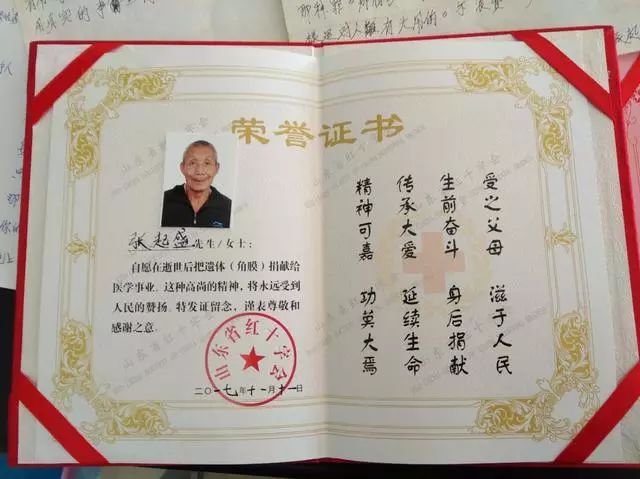 荣誉证书
张起盛 先生/女士:
自愿在逝世后把遗体(角膜)捐献给
医学事业,这种高尚的精神,将永远受到
人民的赞扬。特发证留念,谨表尊敬和
感谢之意。
山东省红十字会
二〇一七年十一月十一日
受之父母 滋于人民
生前奋斗 身后捐献
传承大爱 延续生命
精神可嘉 功莫大焉